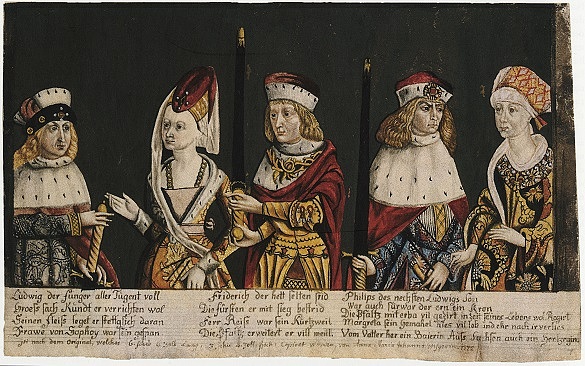 Ludwig der junger aller Tugent voll
Groess sach Kundt er verrichten wol
Seinen fleiss legel er stettglich daran
Frawe von Saphoy war sein gspan
Friderich der hett selten frid
Die fürsten er mit sieg bestrid
Herr Reiss war sein Kurtzweil
Die Pfaltz erweitert er vil meil
Philips des nechsten Ludwigs Son
War auch fürwar der ern ein Kron
Die Pfaltz mit erba vil in Zeit seines Lebens wol Regiert
Margreta sein gemahel hies vil lob und ehr nach ir verlies
Vom Vatter her ein Baierin Auss Sachsen auch ein
nach dem Original, welches